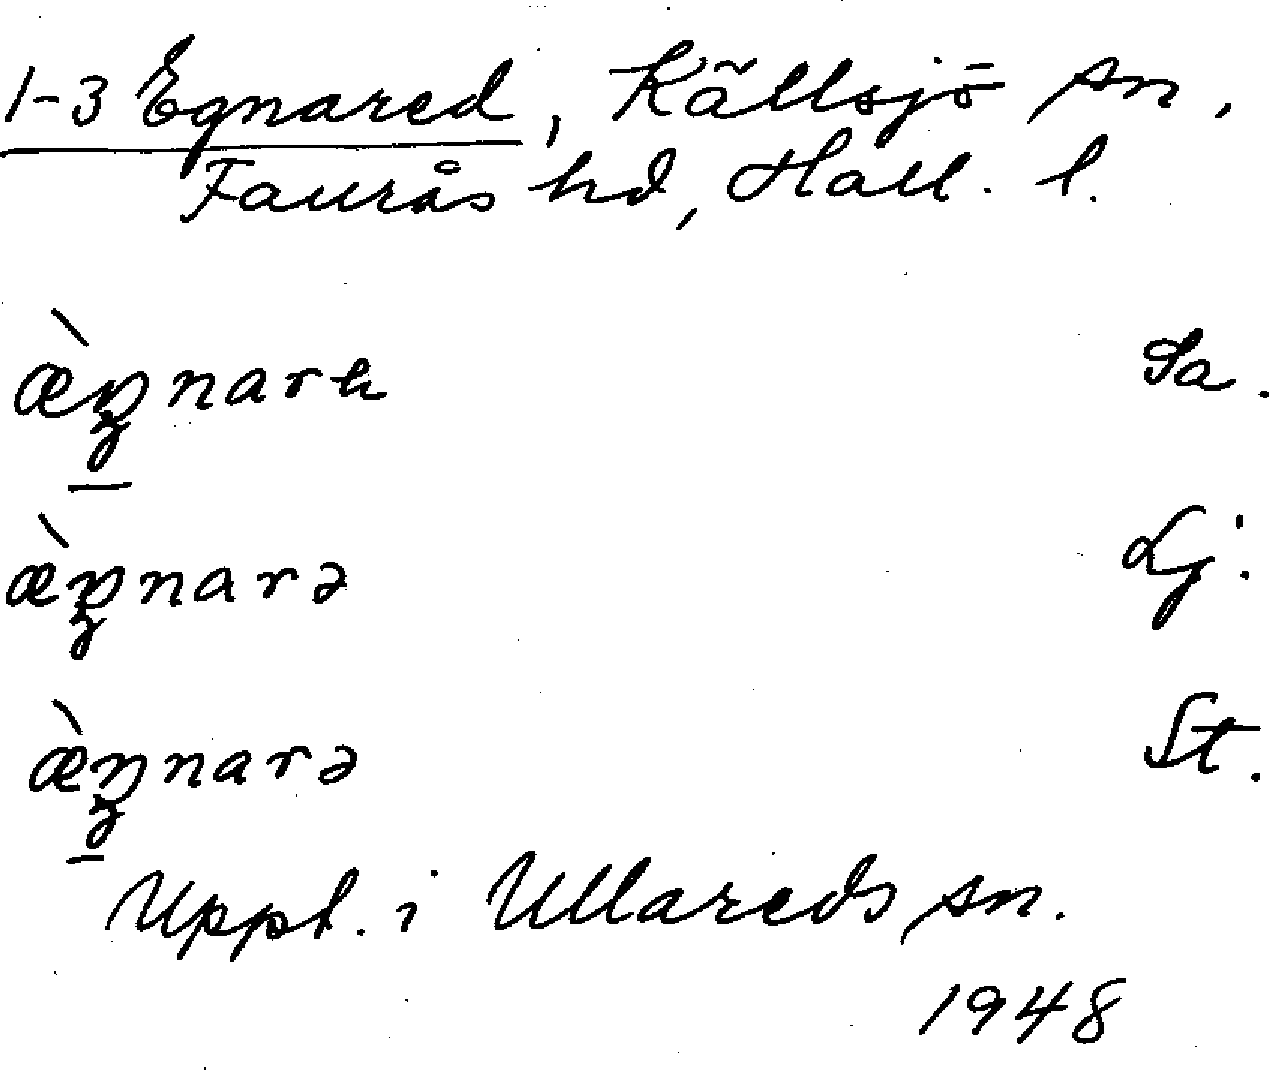 1-3 Egnared, Källsjö sn,
Faurås hd, Hall. l.
æ̀ŋnarə Sa.
æ̀ŋnarə Lj.
æ̀ŋnarə St.
Uppt. i Ullareds sn.
1948